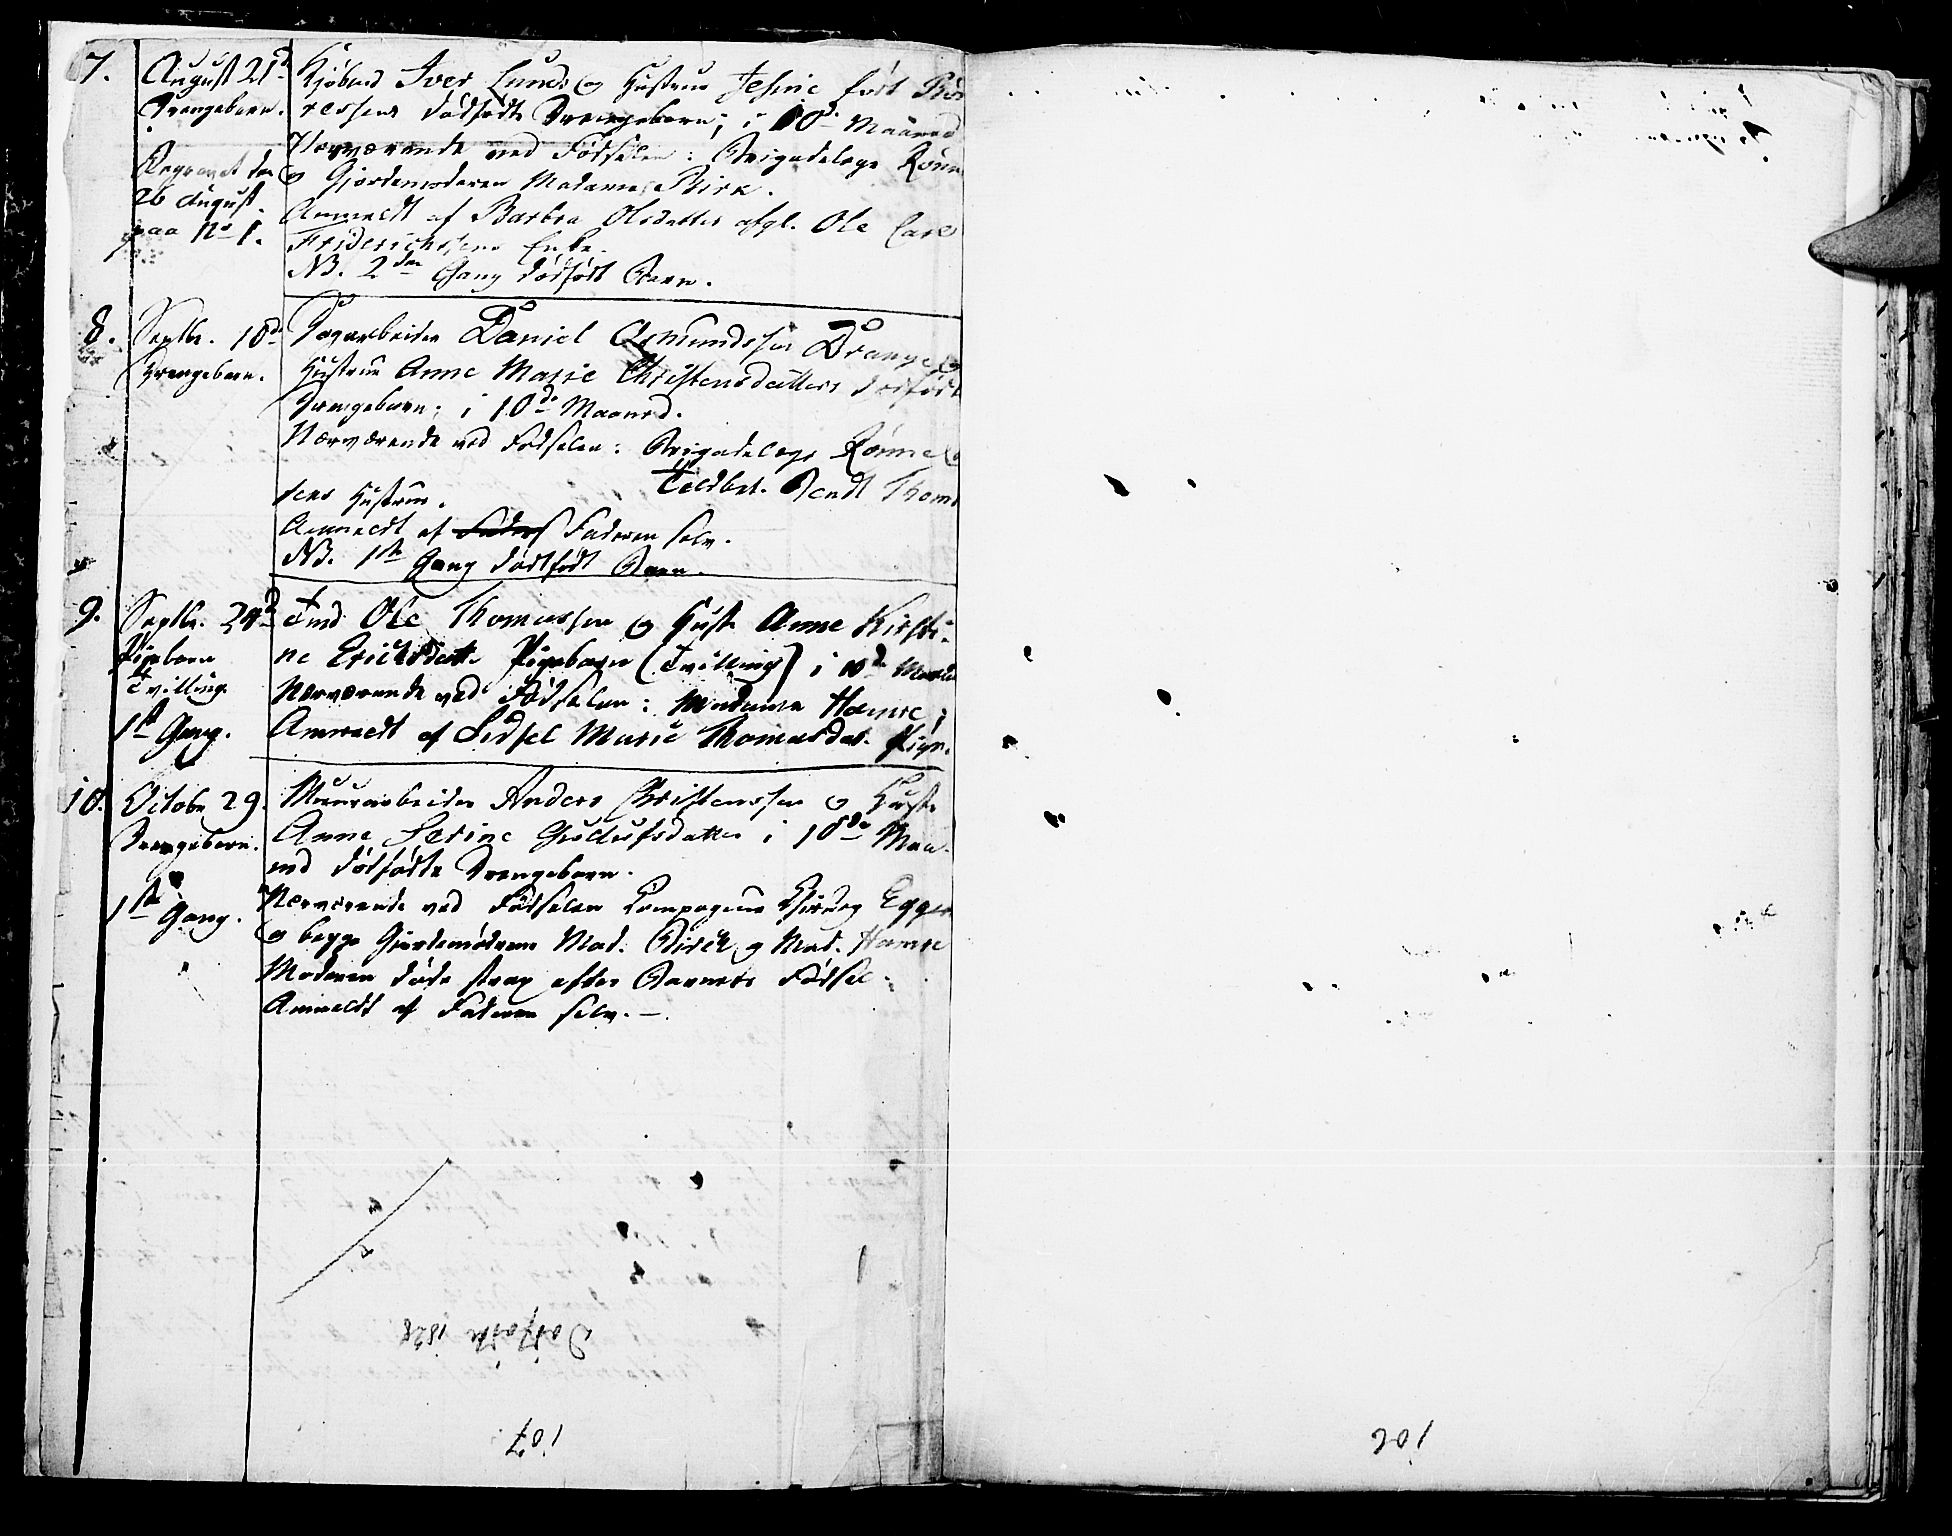 7.
August 21de
Drengebarn.
Begravet den
26 August.
paa No 1.
Kjøbmd Iver Lunds og Hustrue Jesine født
ressens dødfødte Drengebarn; i 10de Maaned
Nærværende ved Fødselen: Brigadelæge Rønne
og Gjordemoderen Madame Birk.
Anmeldt af Barbra Olsdatter afgl. Ole Carl
Friderichsens Enke.
NB. 2den Gang dødfødt Barn.
8.
Septbr. 18de
Drengebarn.
Dagarbeider Daniel Asmundssøn Drange og
Hustrue Anne Marie Christensdatters dødfødt
Drengebarn; i 10de Maaned.
Nærværende ved Fødselen: Brigadelæge Rønne og
Toldbet. Bendt Thom
sens Hustrue.
Anmeldt af Faderen selv.
NB. 1ste Gang dødfødt Barn.
9.
Septbr. 24de
Pigebarn
Tvilling
1ste Gang.
Tmd Ole Thomassen og Hustr Anne Kirsti-
ne Ericksdatt. Pigebarn (Tvilling) i 10de
Nærværende ved Fødselen: Madame Hamre;
Anmeldt af Sidsel Marie Thomasdat. Pige.
10.
Octobr 29.
Drengebarn.
1ste Gang.
Muurarbeider Anders Christenssen og Hustr
Anne Serine Gullufsdatter i 10de Maa-
ned dødfødte Drengebarn.
Nærværende ved Fødselen Compagnie Chirurg Egger
og begge Gjordemødrene Mad. Birck og Mad. Hamre
Moderen døde strax efter Barnets Fødsel.
Anmeldt af Faderen selv. —
Dødfødte 1828
107
106